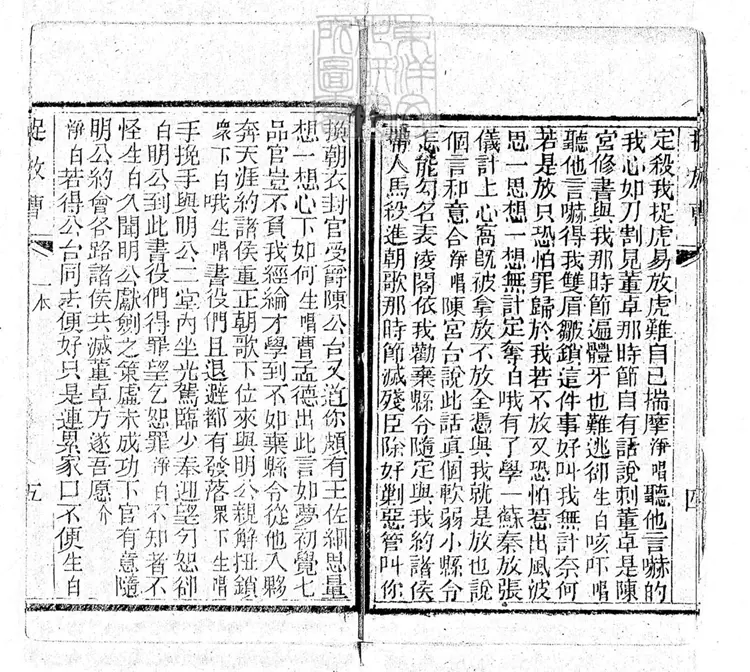 捉放曹
四
定殺我捉虎易放虎難自己揣摩淨唱聽他言嚇的
我心如刀割見董卓那時節自有話說刺董卓是陳
宮修書與我那時節遍體牙也難逃卻生白咳吓唱
聽他言嚇得我雙眉皺鎖這件事好叫我無計奈何
若是放只恐怕罪歸於我若不放又恐怕惹出風波
思一思想一想無計定奪白哦有了學一蘇秦放張
儀計上心窩旣被拿放不放全憑與我就是放也說
個言和意合淨唱陳宮台說此話真個軟弱小縣令
怎能勾名表凌閣依我勸棄縣令隨定與我約諸侯
帶人馬殺進朝歌那時節滅殘臣除好剿惡管叫你
換朝衣封官受爵陳公台久道你頗有王佐細思量
想一想心下如何生唱曹孟德出此言如夢初覺七
品官豈不負我經綸才學到不如棄縣令從他入夥
奔天涯約諸侯重正朝歌下位來與明公親解扭鎖
衆下白哦生唱書役們且退避都有發落衆下生唱
手挽手與明公二堂內坐光駕臨少奉迎望勾恕卻
白明公到此書役們得罪望乞恕罪淨白不知者不
怪生白久聞明公獻劍之策虛未成功下官有意隨
明公約會各路諸侯共滅董卓方遂吾愿介
淨白若得公台同去便好只是連累家口不便生白
捉放曹
一本
五